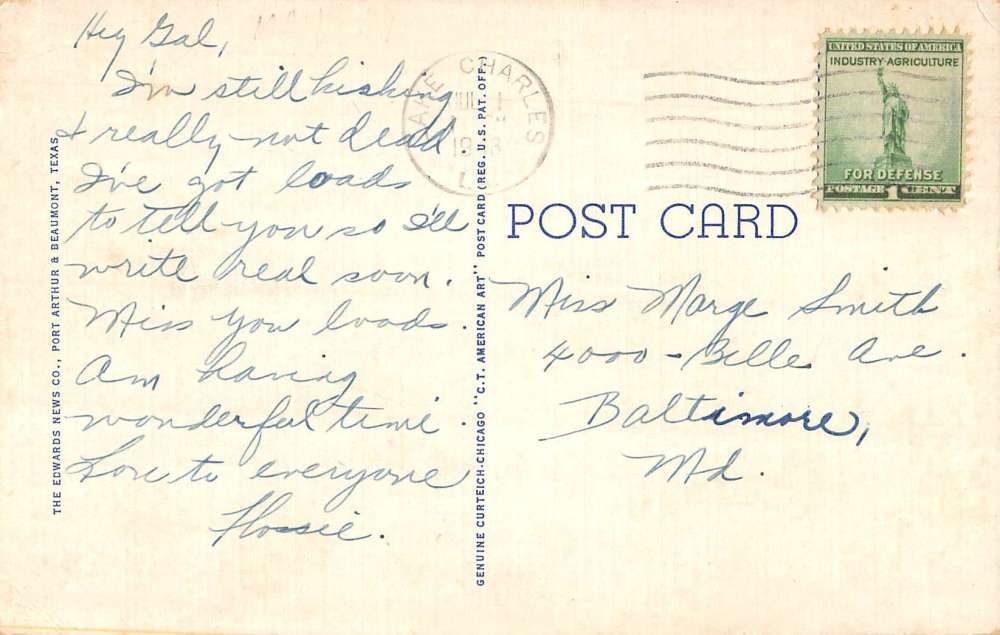 Hey Gal,
I'm still kicking
& really not dead
I've got loads
to tell you so I'll
write real soon.
Miss you loads.
Am having
wonderful time.
Love to everyone
Flossie.
THE EDWARDS NEWS CO., PORT ARTHUR & BEAUMONT, TEXAS
GENUINE CURTEICH-CHICAGO "C.T. AMERICAN ART" POST CARD (REG. U.S. PAT. OFF.)
LAKE CHARLES
JUL 1
LA
UNITED STATES OF AMERICA
INDUSTRY·AGRICULTURE
FOR DEFENSE
POSTAGE 1 CENT
POST CARD
Miss Marge Smith
4000 - Belle Ave.
Baltimore,
Md.